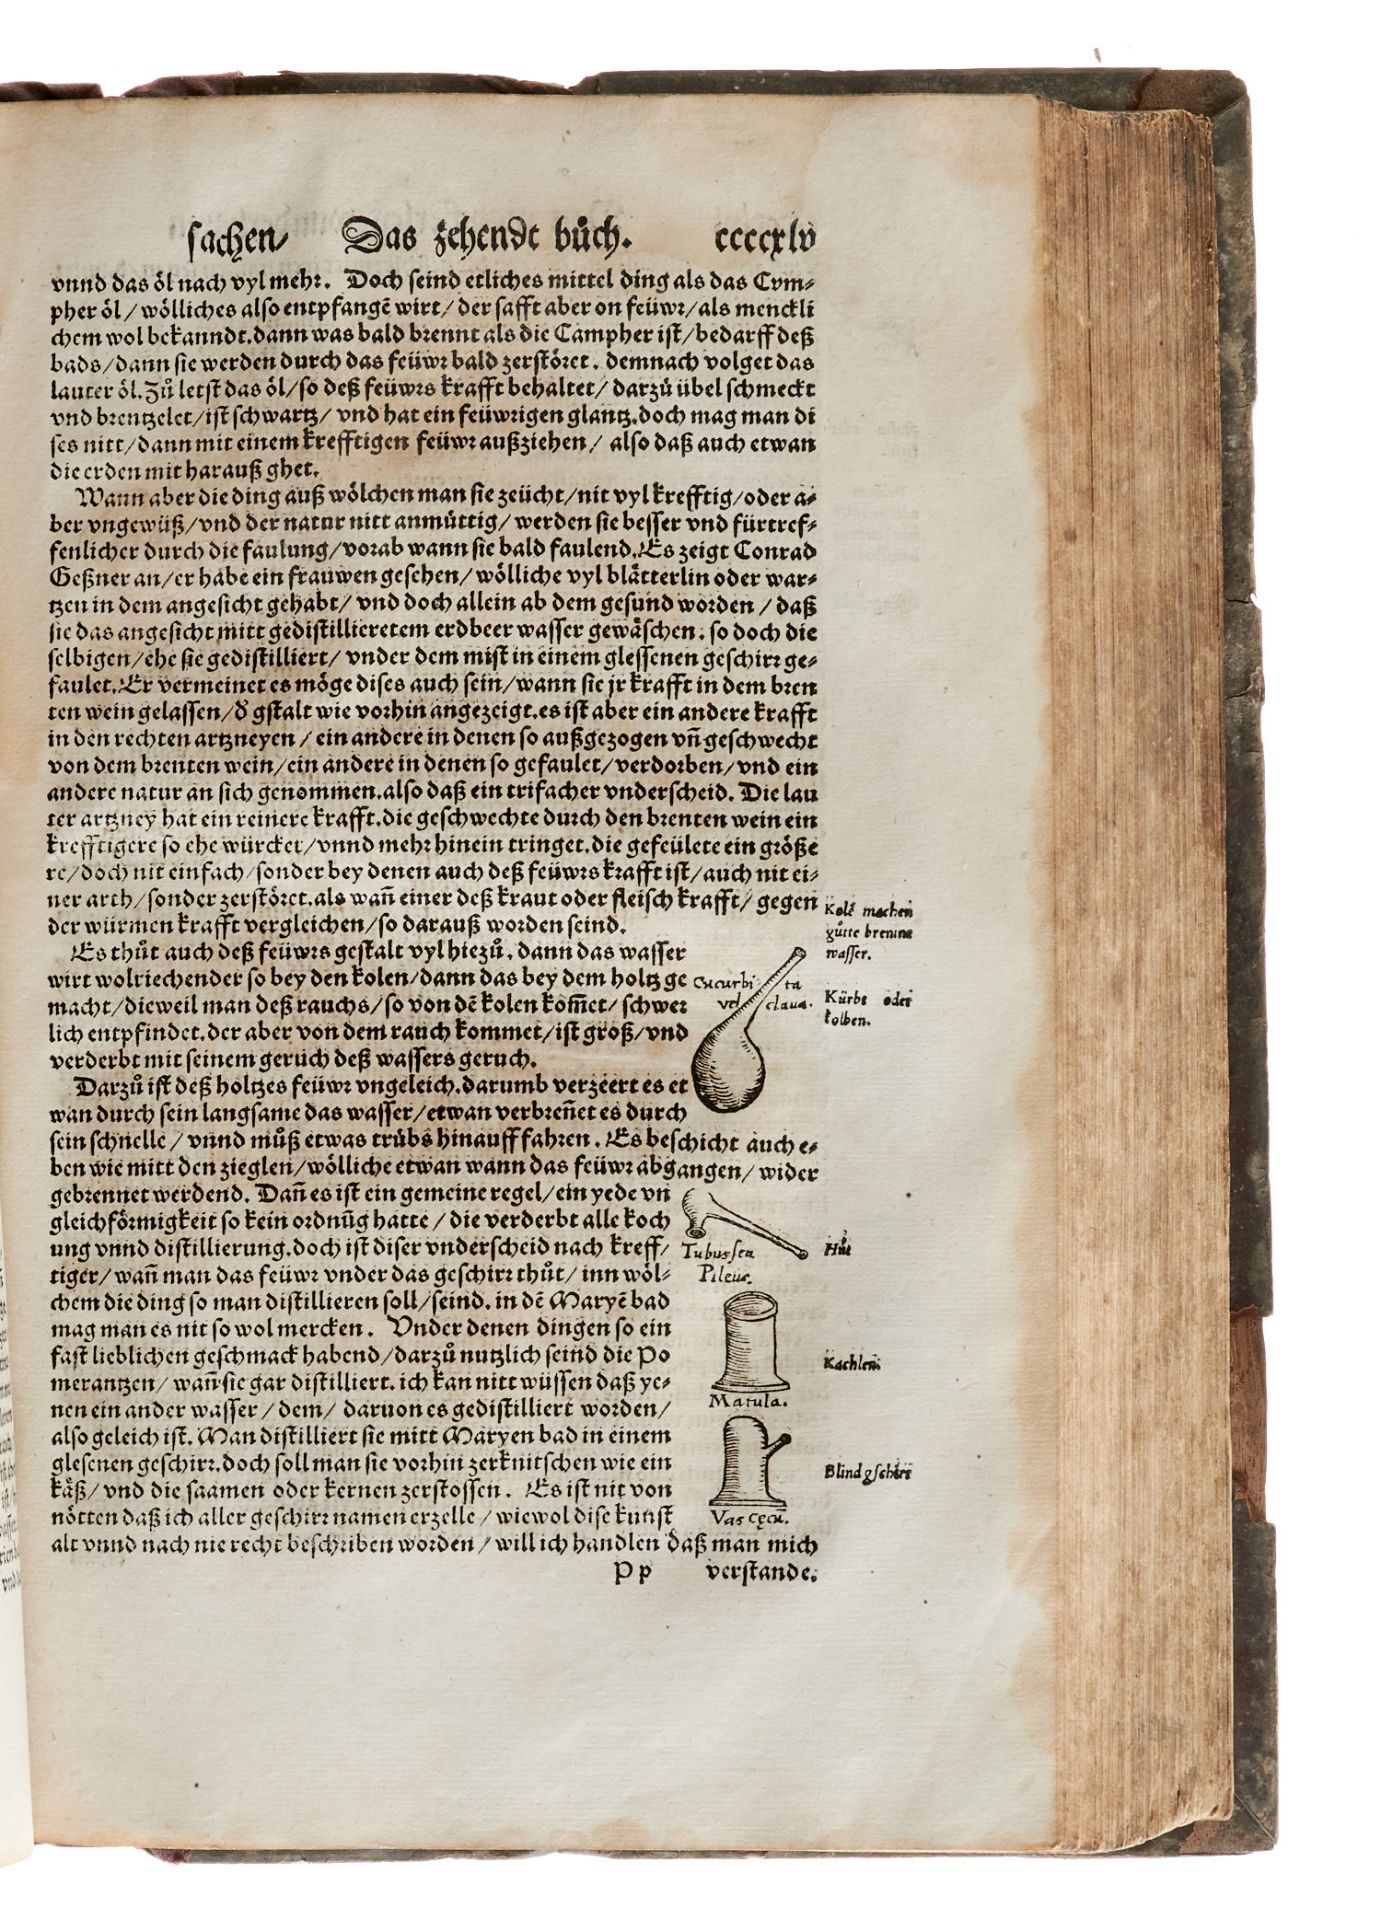 sachen/ Das zehendt bůch. ccccxlv
vnnd das öl nach vyl mehr. Doch seind etliches mittel ding als das Cym-
pher öl/ wölliches also entpfangē wirt/ der safft aber on feüwr/ als menckli
chem wol bekanndt. dann was bald brennt als die Campher ist/ bedarff deß
bads/ dann sie werden durch das feüwr bald zerstöret. demnach volget das
lauter öl. Zů letst das öl/ so deß feüwrs krafft behaltet/ darzů übel schmeckt
vnd brentzelet/ ist schwartz/ vnd hat ein feüwrigen glantz. doch mag man di
ses nitt/ dann mit einem krefftigen feüwr außziehen/ also daß auch etwan
die erden mit harauß ghet.
Wann aber die ding auß wölchen man sie zeücht/ nit vyl krefftig/ oder a-
ber vngewüß/ vnd der natur nitt anmüttig/ werden sie besser vnd fürtref-
fenlicher durch die faulung/ vorab wann sie bald faulend. Es zeigt Conrad
Geßner an/ er habe ein frauwen gesehen/ wölliche vyl blätterlin oder war-
tzen in dem angesicht gehabt/ vnd doch allein ab dem gesund worden/ daß
sie das angesicht mitt gedistillieretem erdbeer wasser gewäschen. so doch die
selbigen/ ehe sie gedistilliert/ vnder dem mist in einem glessenen geschirr ge-
faulet. Er vermeinet es möge dises auch sein/ wann sie jr krafft in dem bren
ten wein gelassen/ d̕ gstalt wie vorhin angezeigt. es ist aber ein andere krafft
in den rechten artzneyen/ ein andere in denen so außgezogen vn̄ geschwecht
von dem brenten wein/ ein andere in denen so gefaulet/ verdorben/ vnd ein
andere natur an sich genommen. also daß ein trifacher vnderscheid. Die lau
ter artzney hat ein reinere krafft. die geschwechte durch den brenten wein ein
krefftigere so ehe würcket/ vnnd mehr hinein tringet. die gefeülete ein größe
re/ doch nit einfach/ sonder bey denen auch deß feüwrs krafft ist/ auch nit ei-
ner arth/ sonder zerstöret. als wañ einer deß kraut oder fleisch krafft/ gegen
der würmen krafft vergleichen/ so darauß worden seind.
Kolē machen
gůtte brenne
wasser.
Es thůt auch deß feüwrs gestalt vyl hiezů. dann das wasser
wirt wolriechender so bey den kolen/ dann das bey dem holtz ge
macht/ dieweil man deß rauchs/ so von dē kolen kom̄et/ schwer
lich entpfindet. der aber von dem rauch kommet/ ist groß/ vnd
verderbt mit seinem geruch deß wassers geruch.
Cucurbita
vel claua.
Kürbs oder
kolben.
Darzů ist deß holtzes feüwr vngeleich. darumb verzeert es et
wan durch sein langsame das wasser/ etwan verbreñet es durch
sein schnelle/ vnnd můß etwas trübs hinauff fahren. Es beschicht auch e-
ben wie mitt den zieglen/ wölliche etwan wann das feüwr abgangen/ wider
gebrennet werdend. Dañ es ist ein gemeine regel/ ein yede vn
gleichförmigkeit so kein ordnūg hatte/ die verderbt alle koch
ung vnnd distillierung. doch ist diser vnderscheid nach kreff/
tiger/ wañ man das feüwr vnder das geschirr thůt/ inn wöl-
chem die ding so man distillieren soll/ seind. in dē Maryē bad
mag man es nit so wol mercken. Vnder denen dingen so ein
fast lieblichen geschmack habend/ darzů nutzlich seind die Po
merantzen/ wañ sie gar distilliert. ich kan nitt wüssen daß ye-
nen ein ander wasser/ dem/ daruon es gedistilliert worden/
also geleich ist. Man distilliert sie mitt Maryen bad in einem
glesenen geschirr. doch soll man sie vorhin zerknitschen wie ein
käß/ vnd die saamen oder kernen zerstossen. Es ist nit von
nötten daß ich aller geschirr namen erzelle/ wiewol dise kunst
alt vnnd nach nie recht beschriben worden/ will ich handlen daß man mich
Tubus seu
Pileus.
Hůt
Matula.
Kachlen
Vas cęcū.
Blind gschirr
Pp verstande.